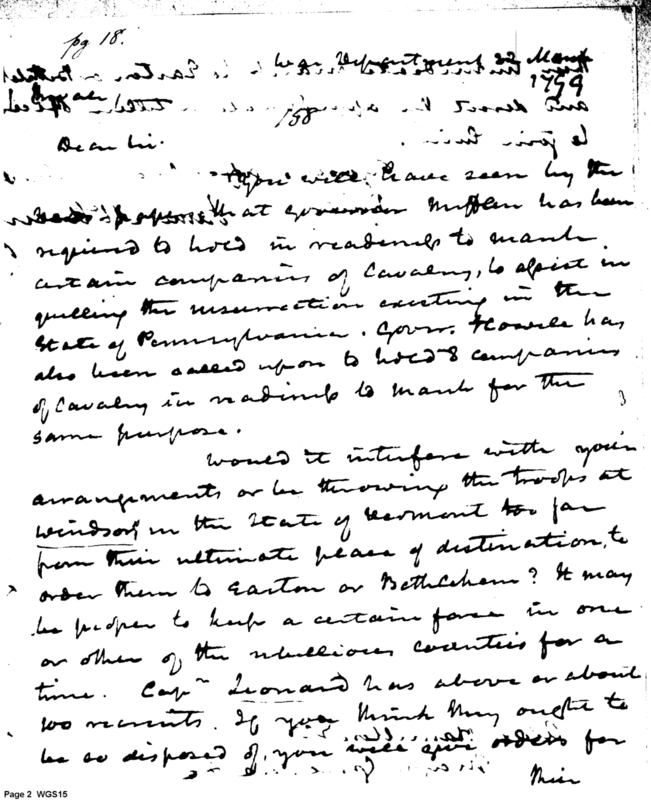 pg 18.
War Department 22 March
1799
Private
158
Dear Sir.
You will have seen by the
papers that Governor Mifflin has been
required to hold in readiness to march
certain companies of Cavalry, to assist in
quelling the insurrection existing in the
State of Pennsylvania. Govr. Howell has
also been called upon to hold 8 companies
of Cavalry in readiness to march for the
same purpose.
Would it interfere with your
arrangements or be throwing the troops at
Windsor, in the State of Vermont too far
from their ultimate place of destination, to
order them to Easton or Bethlehem? It may
be proper to keep a certain force in one
or other of the rebellious counties for a
time. Capn Leonard has above or about
100 recruits. If you think they ought to
be so disposed of, you will give orders for
their
Page 2 WGS15